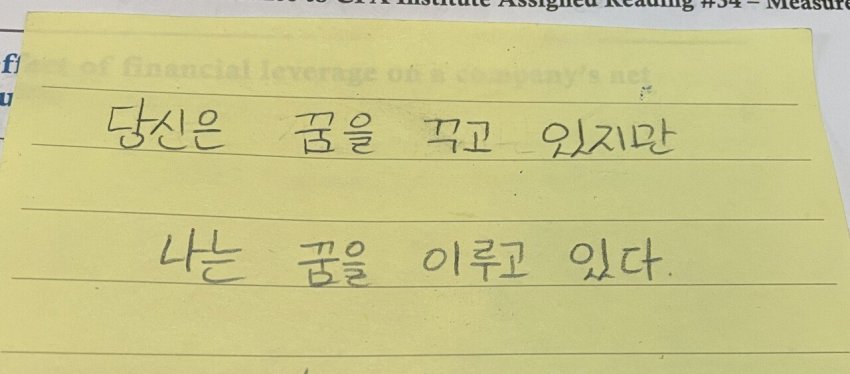 to CFA Institute Assigned Reading #34 – Measure
effect of financial leverage on a company's net
당신은 꿈을 꾸고 있지만
나는 꿈을 이루고 있다.